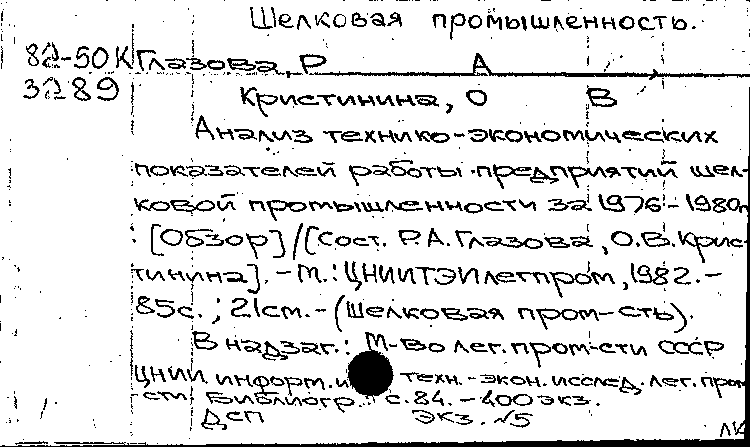 Шелковая промышленность.
82-50К Глазова, Р А
3289 Кристинина, О В
Анализ технико-экономических
показателей работы предприятий шел-
ковой промышленности за 1976-1980г
: [Обзор]/[Сост. Р.А.Глазова, О.В.Крис-
тинина]. - М.: ЦНИИТЭИлегпром, 1982.-
85с.; 21см.-(Шелковая пром-сть).
В надзаг.: М-во лег. пром-сти СССР
ЦНИИ информ. и техн.-экон. исслед. лег. пром
-сти Библиогр. с.84. - 400 экз.
ДСП экз. №5